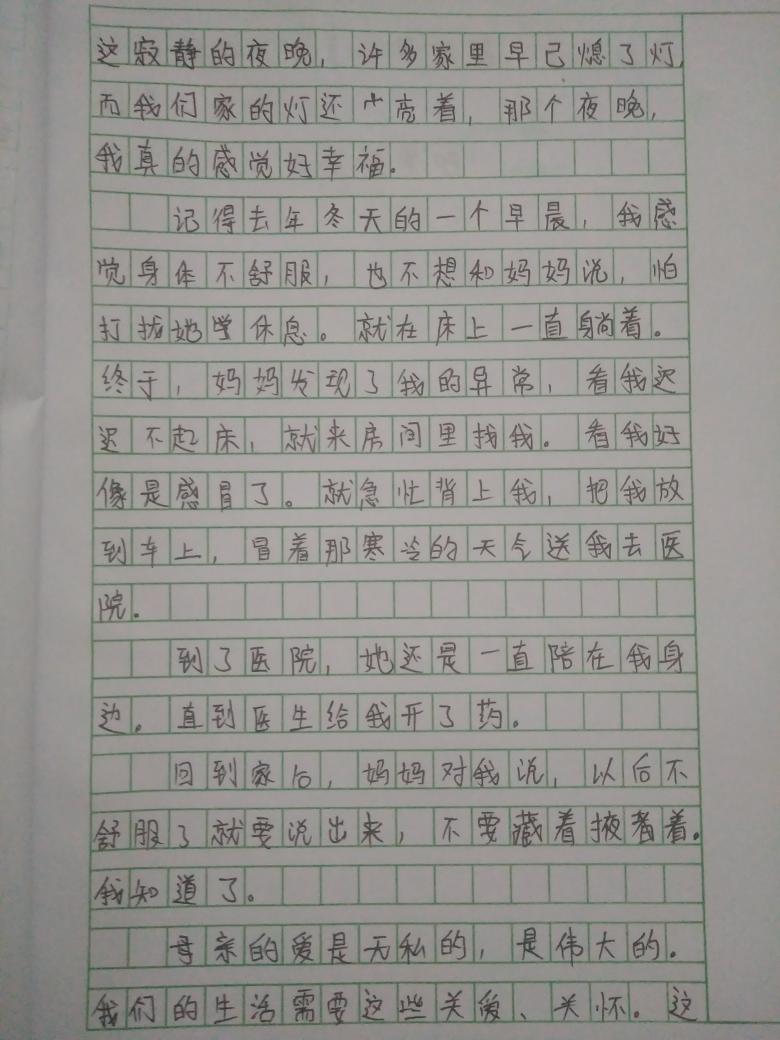 这寂静的夜晚，许多家里早已熄了灯，
而我们家的灯还亮着，那个夜晚，
我真的感觉好幸福。
记得去年冬天的一个早晨，我感
觉身体不舒服，也不想和妈妈说，怕
打扰她休息。就在床上一直躺着。
终于，妈妈发现了我的异常，看我迟
迟不起床，就来房间里找我。看我好
像是感冒了。就急忙背上我，把我放
到车上，冒着那寒冷的天气送我去医
院。
到了医院，她还是一直陪在我身
边。直到医生给我开了药。
回到家后，妈妈对我说，以后不
舒服了就要说出来，不要藏着掖着。
我知道了。
母亲的爱是无私的，是伟大的。
我们的生活需要这些关爱、关怀。这